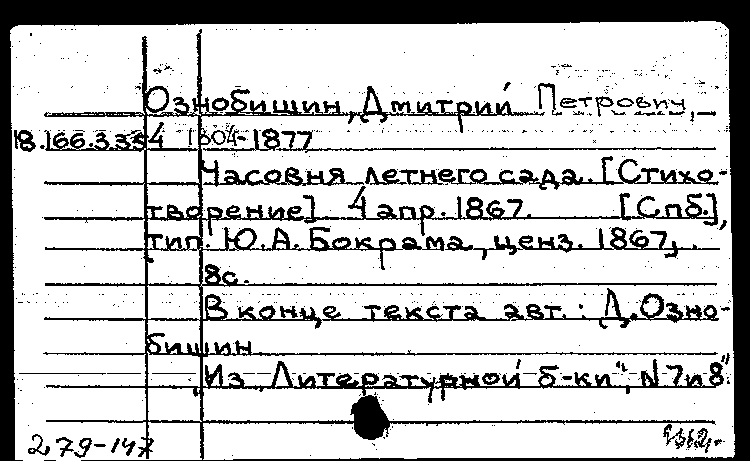 Ознобишин, Дмитрий Петрович,
18.166.3.334 1804-1877
Часовня летнего сада. [Стихо-
творение] 4 апр. 1867. [Спб.],
тип. Ю.А. Бокрама, ценз. 1867,
8с.
В конце текста авт.: Д. Озно-
бишин
Из „Литературной б-ки", N 7 и 8
2,79-147